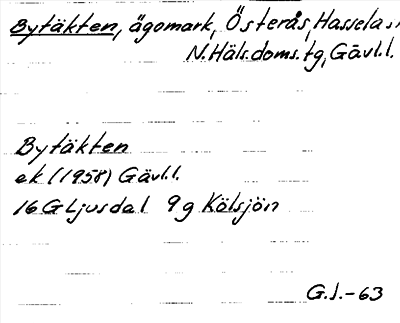 Bytäkten, ägomark, Österås, Hassela sn
N. Häls. doms. tg, Gävl.l.
Bytäkten
ek (1958) Gävl.l.
16 G Ljusdal 9g Kölsjön
G.J.-63